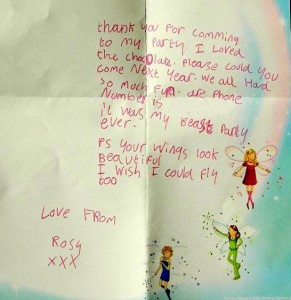 thank you for comming
to my Party. I Loved
the chocolate. Please could you
come Next Year. we all Had
so much Fun. are Phone
Number is
it was my Beast Party
ever.
Ps Your wings look
Beautiful
I wish I could fly
too
Love From
Rosy
xxx